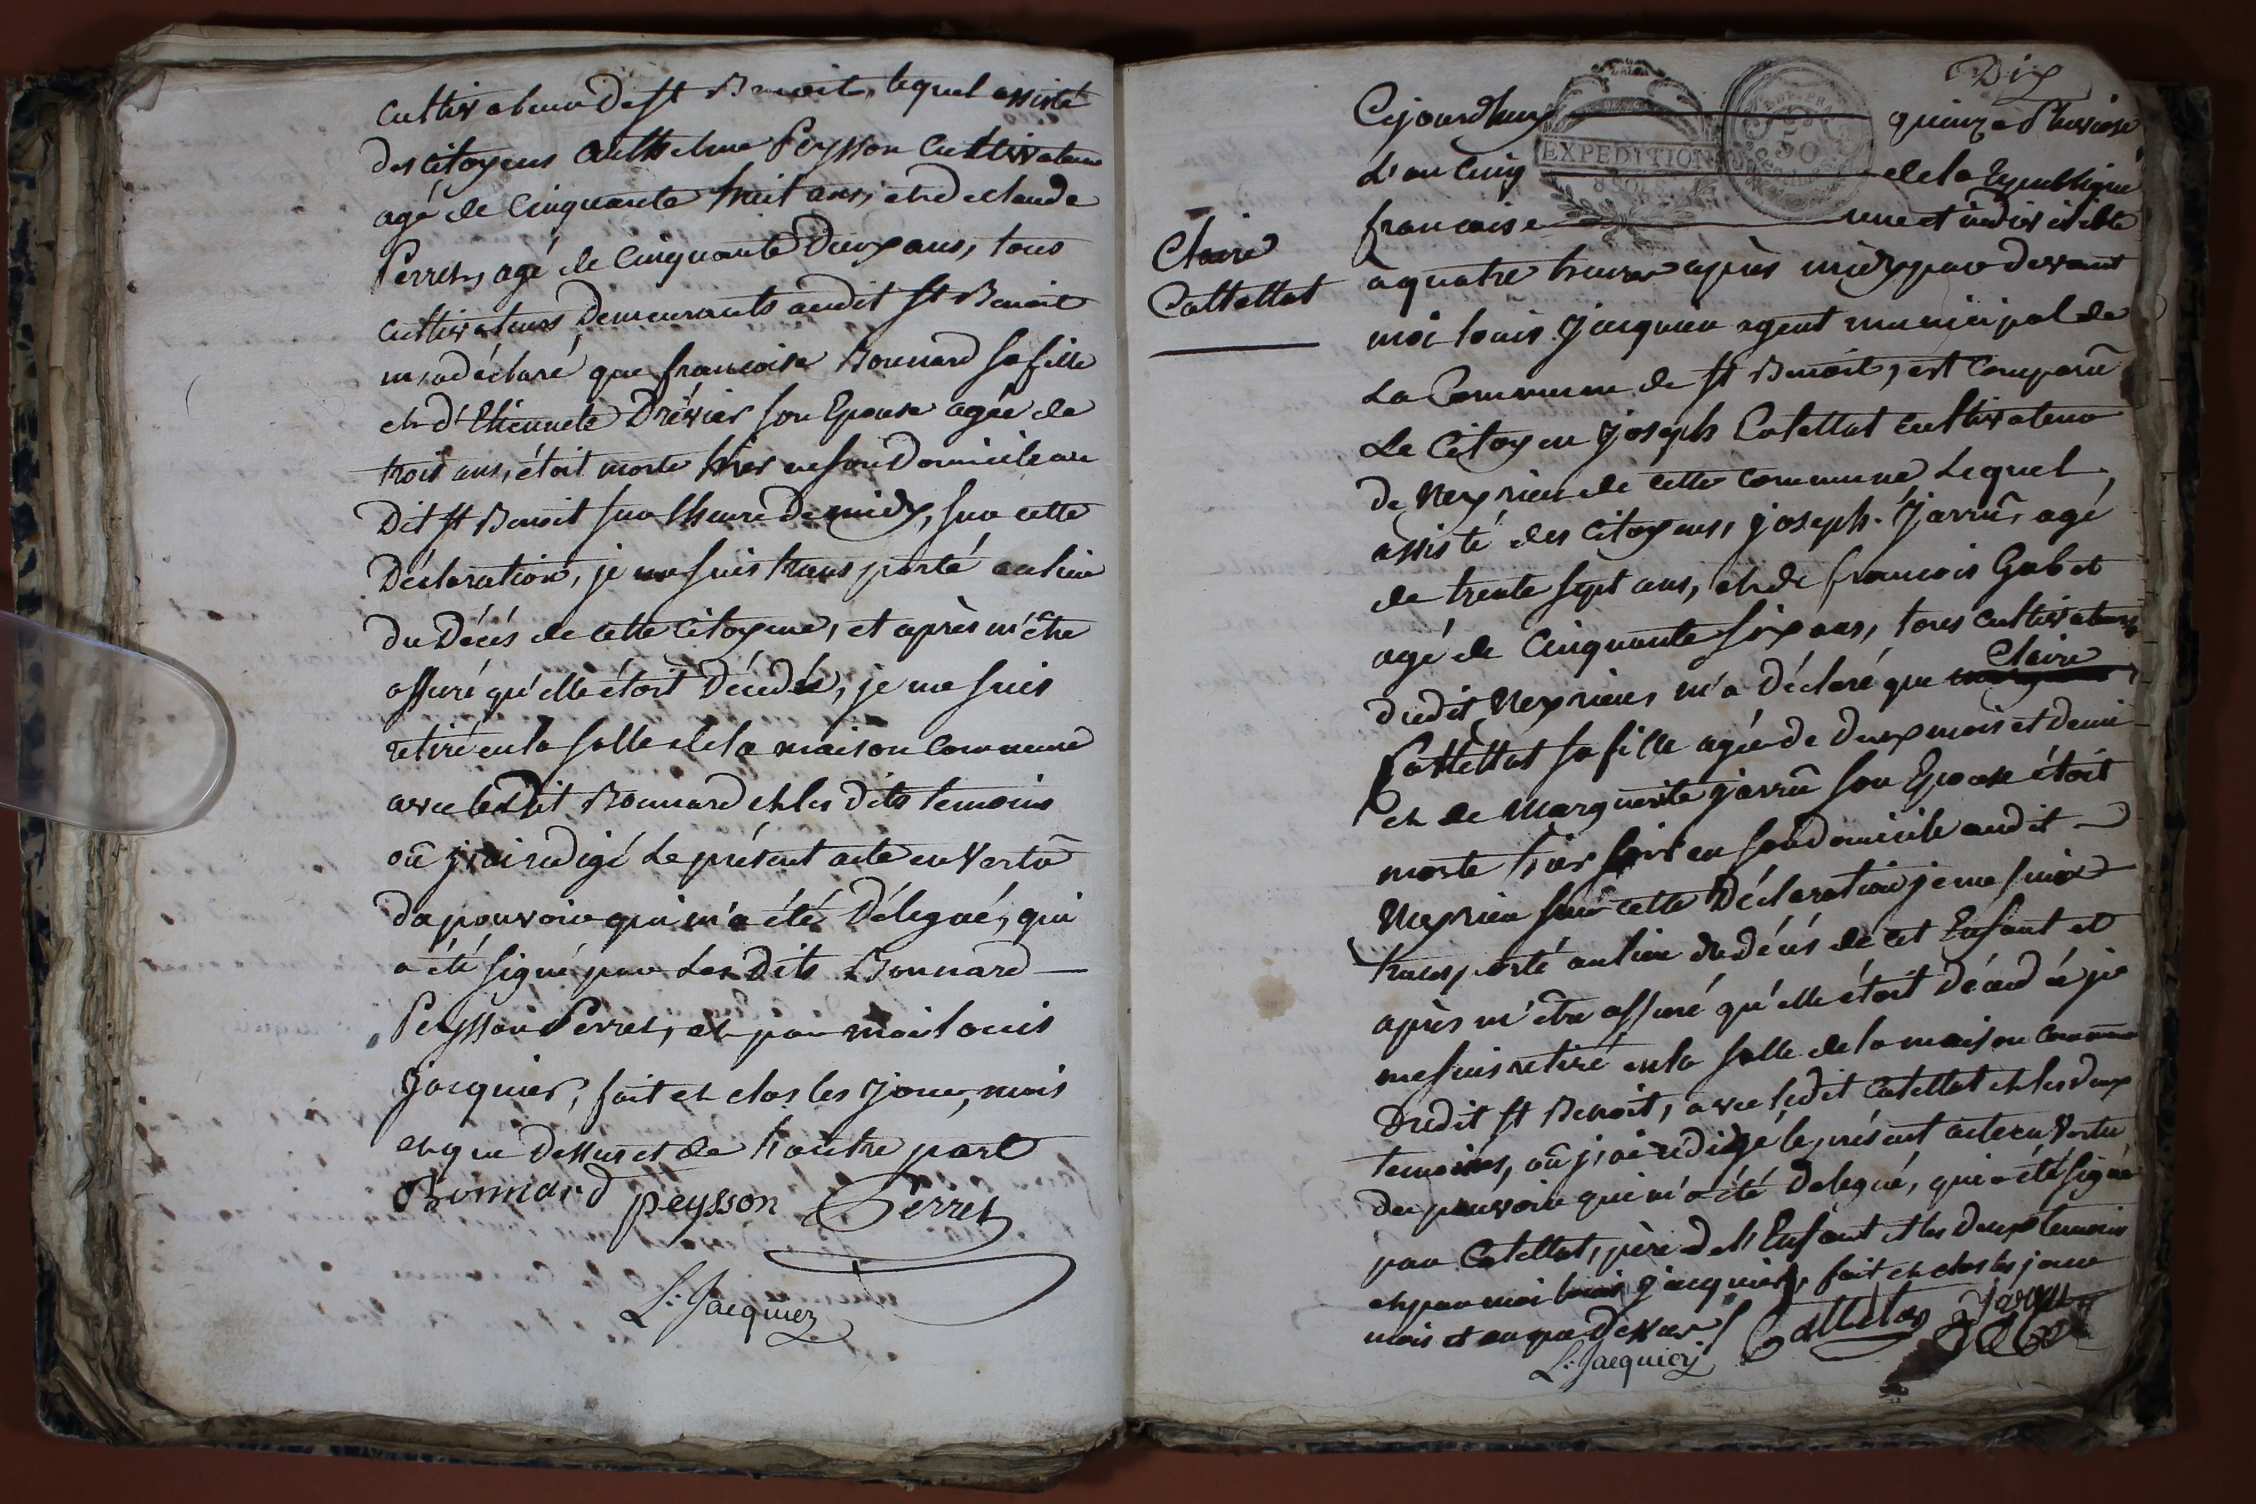 cultivateur de st Benoit, lequel assisté
des citoyens Anthelme Peysson cultivateur
agé de cinquante huit ans, et de claude
Perret, agé de cinquante deux ans, tous
cultivateurs demeurants audit st Benoit
m'a déclaré que francoise Bonnard sa fille
et d'Etiennete Drévier son Epouse agée de
trois ans, étoit morte hier en son domicile au
dit st Benoit sur lheure de midy, sur cette
Déclaration, je me suis transporté au lieu
du Décés de cette citoyene, et après m'être
assuré qu'elle étoit Décedée, je me suis
retiré en la salle de la maison commune
avec ledit Bonnard et les dits temoins
oû j'ai redigé le présent acte en vertû
du pouvoir qui m'a été Délegué, qui
a été signé par les Dits Bonnard
Peysson Perret, et par moi louis
Jacquier, fait et clos les jour, mois
et que dessus et de l'autre part
Bonnard peysson Perret
L. Jacquier
Dix
Cejourdhuy quinze Pluviose
L'an cinq de la Republique
EXPEDITION
francaise une et indivisible
Claire
Cattellat
a quatre heures après midy par devant
moi louis Jacquier agent municipal de
La Commune de st Benoit, est comparû
Le Citoyen Joseph Catellat cultivateur
de Neyrieu de cette commune Lequel
assisté des citoyens, joseph Jarrû, agé
de trente sept ans, et de francois Gabet
agé de cinquante six ans, tous cultivateurs
dudit Neyrieu, m'a Déclaré que Claire
Cattellat sa fille agée de deux mois et demi
et de Marguerite jarrû son Epouse étoit
morte hier soir en son domicile audit
Neyrieu sur cette Déclaration je me suis
transporté au lieu du décés de cet Enfant et
après m'être assuré qu'elle étoit décedée je
me suis retiré en la salle de la maison commune
dudit st Benoit, avec ledit Catellat et les deux
temoins, oû j'ai redigé le présent acte en vertu
du pouvoir qui m'a été delegué, qui a été signé
par Catellat, père de l'Enfant et les deux temoins
et par moi louis jacquier, fait et clos les jour
mois et an que dessus Cattelat Jarru
L. Jacquier